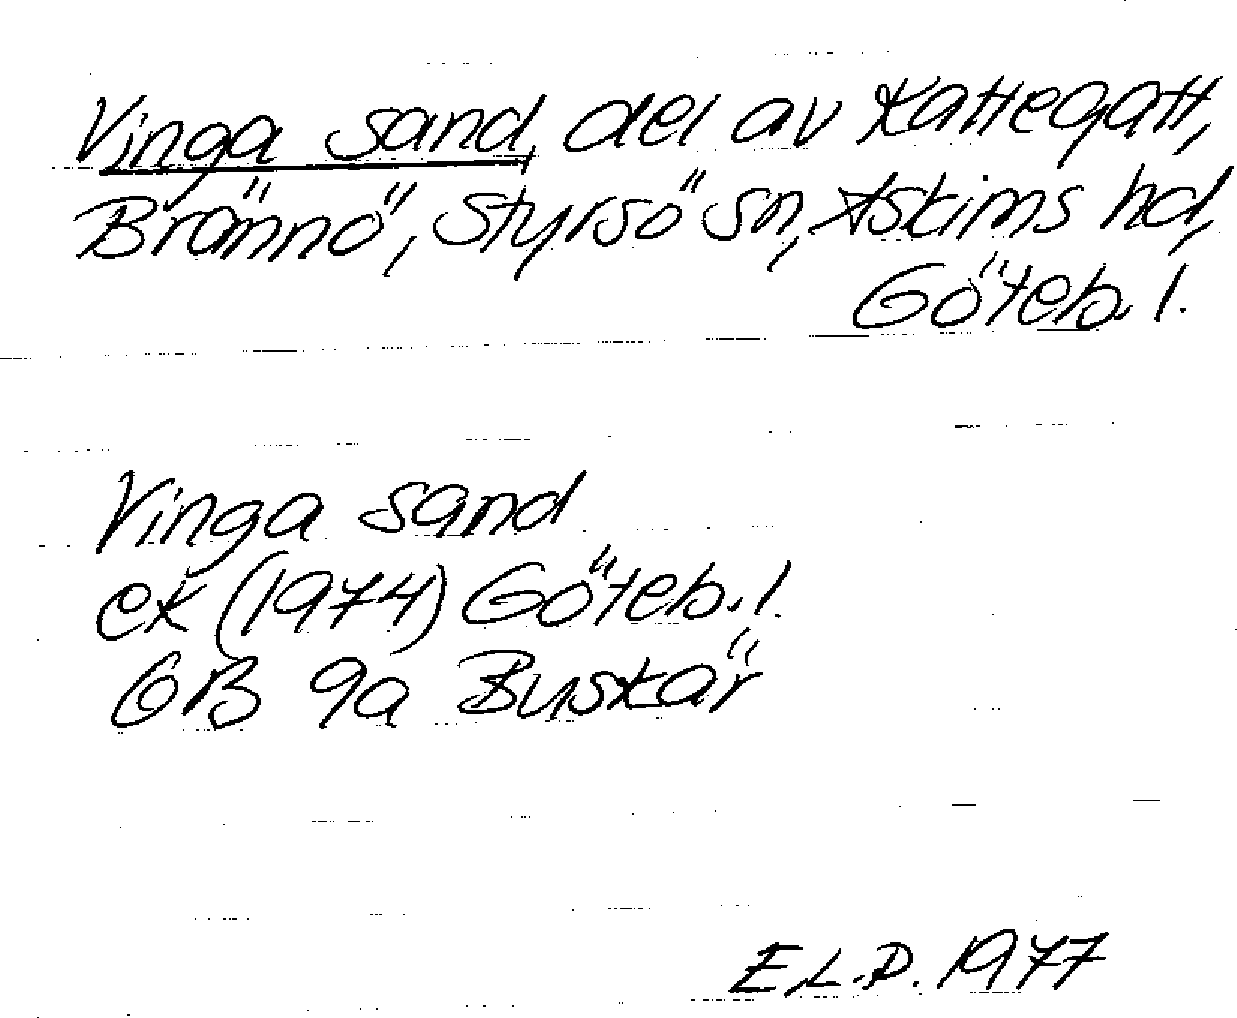 Vinga sand, del av Kattegatt,
Brännö, Styrsö sn, Askims hd,
Göteb. l.
Vinga sand
ek (1974) Göteb. l.
GB 9a Buskär
E.L.D. 1977